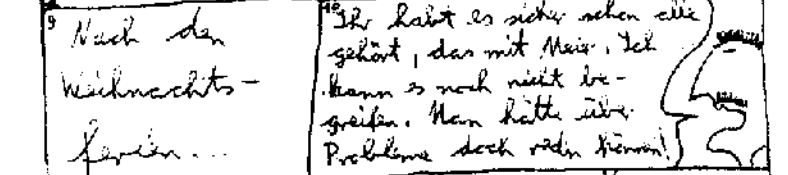 9
Nach den
Weihnachts-
ferien...
10
Ihr habt es sicher schon alle
gehört, das mit Meier. Ich
kann es noch nicht be-
greifen. Man hätte über
Probleme doch reden können!